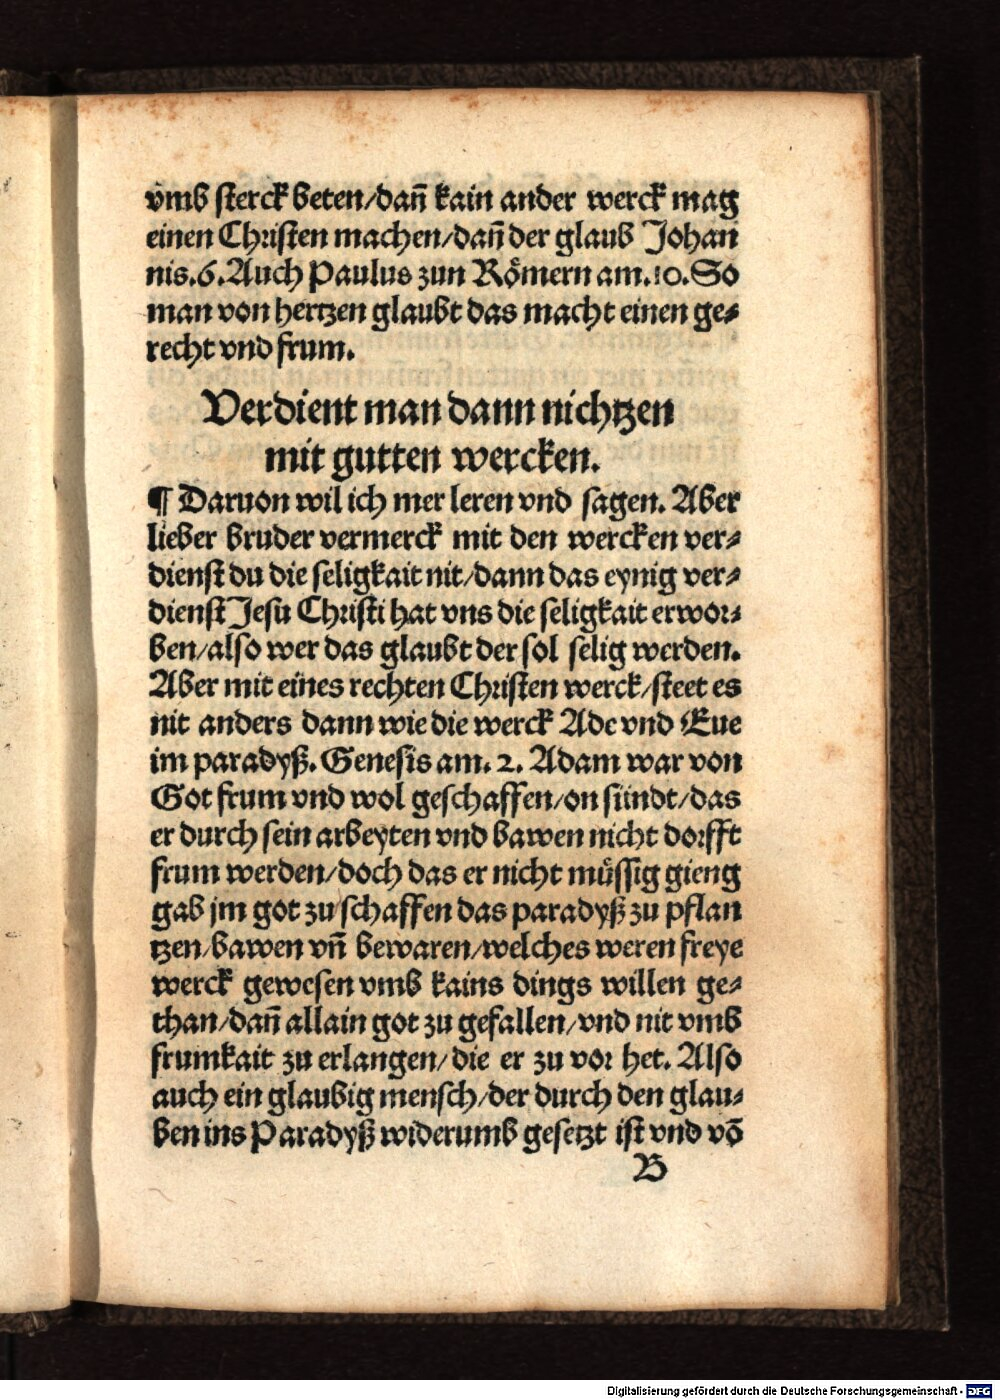 vmb sterck beten/dañ kain ander werck mag
einen Christen machen/dañ der glaub Johan
nis.6. Auch Paulus zun Römern am.10. So
man von hertzen glaubt das macht einen ge⸗
recht vnd frum.
Verdient man dann nichtzen
mit gutten wercken.
¶ Daruon wil ich mer leren vnd sagen. Aber
lieber bruder vermerck mit den wercken ver⸗
dienst du die seligkait nit/dann das eynig ver⸗
dienst Jesu Christi hat vns die seligkait erwor⸗
ben/also wer das glaubt der sol selig werden.
Aber mit eines rechten Christen werck/steet es
nit anders dann wie die werck Ade vnd Eue
im paradyß. Genesis am. 2. Adam war von
Got frum vnd wol geschaffen/on sündt/das
er durch sein arbeyten vnd bawen nicht dorfft
frum werden/doch das er nicht müssig gieng
gab jm got zu schaffen das paradyß zu pflan
tzen/bawen vñ bewaren/welches weren freye
werck gewesen vmb kains dings willen ge⸗
than/dañ allain got zu gefallen/vnd nit vmb
frumkait zu erlangen/die er zu vor het. Also
auch ein glaubig mensch/der durch den glau⸗
ben ins Paradyß widerumb gesetzt ist vnd vō
B
Digitalisierung gefördert durch die Deutsche Forschungsgemeinschaft - DFG